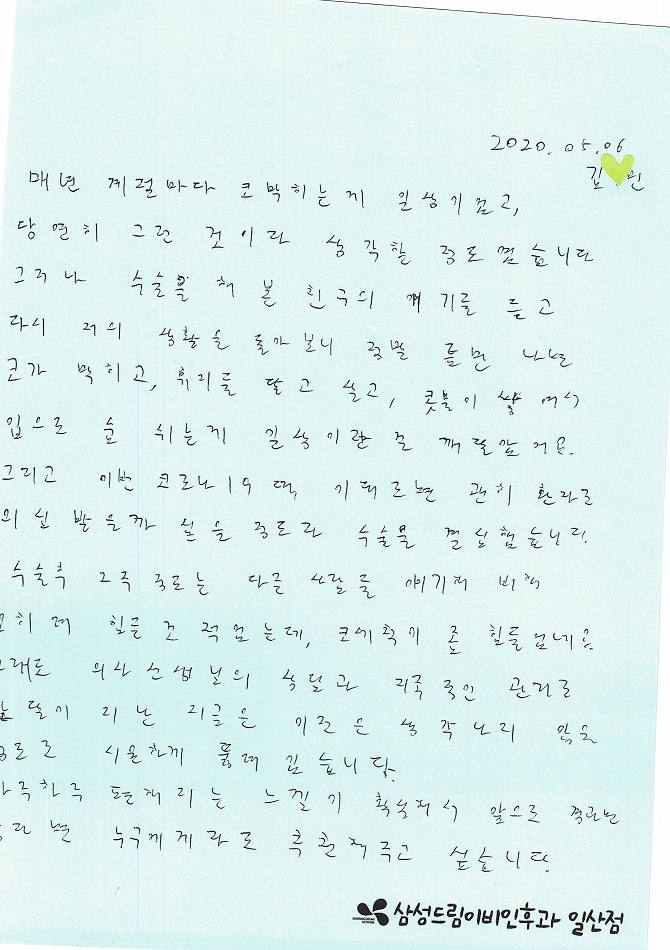 2020. 05. 06
김 린
매년 계절마다 코막히는게 일상이었고,
당연히 그런 것이라 생각할 정도였습니다
그러나 수술을 해 본 친구의 얘기를 듣고
다시 저의 상황을 돌아보니 정말 틀면 나는
코가 막히고, 휴지를 달고 살고, 콧물이 쌓여서
입으로 숨 쉬는게 일상이란 걸 깨달았어요.
그리고 이번 코로나19 때, 기침하면 괜히 환자로
의심 받을까 싫을 정도라 수술을 결심했습니다.
수술후 2주 정도는 다른 사람들 얘기에 비해
오히려 힘들진 적었는데, 코세척이 좀 힘들었네요.
그래도 의사선생님의 상담과 지속적인 관리로
한달이 지난 지금은 이전은 생각나지 않을
정도로 시원하게 뚫려 있습니다.
하루하루 편해지는 느낌이 확실해서 앞으로
누구에게라도 추천해주고 싶습니다.
삼성드림이비인후과 일산점